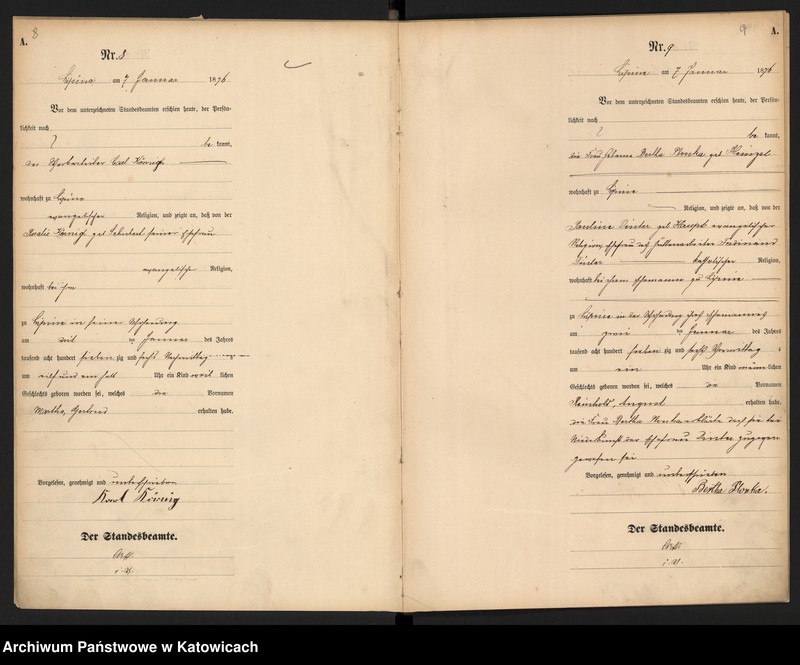 8
A.
Nr. 8
Lipine am 7 Januar 1876
Vor dem unterzeichneten Standesbeamten erschien heute, der Persön-
lichkeit nach
be kannt,
der Karl König
wohnhaft zu Lipine
evangelischer Religion, und zeigte an, daß von der
König geb. seiner Ehefrau
evangelischer Religion,
wohnhaft bei ihm
zu Lipine in seiner Wohnung
am drei ten Januar des Jahres
tausend acht hundert siebenzig und sechs Nachmittag
um elf und ein halb Uhr ein Kind weib lichen
Geschlechts geboren worden sei, welches die Vornamen
Martha, Gertrud erhalten habe.
Vorgelesen, genehmigt und unterschrieben
Karl König
Der Standesbeamte.
i. V.
9
A.
Nr. 9
Lipine am 7 Januar 1876
Vor dem unterzeichneten Standesbeamten erschien heute, der Persön-
lichkeit nach
be kannt,
die Frau Hebamme Bertha geb. Heinzel
wohnhaft zu Lipine
Religion, und zeigte an, daß von der
geb. Haupt evangelischer
Religion, Ehefrau des Hüttenarbeiter Ferdinand
katholischer Religion,
wohnhaft bei ihrem Ehemanne zu Lipine
zu Lipine in der Wohnung ihres Ehemannes
am zwei ten Januar des Jahres
tausend acht hundert siebenzig und sechs Vormittag s
um ein Uhr ein Kind männ lichen
Geschlechts geboren worden sei, welches die Vornamen
Reinhold, August erhalten habe.
die Frau Bertha erklärte daß sie bei
Niederkunft der Ehefrau zugegen
gewesen sei
Vorgelesen, genehmigt und unterschrieben
Bertha
Der Standesbeamte.
i. V.
Archiwum Państwowe w Katowicach